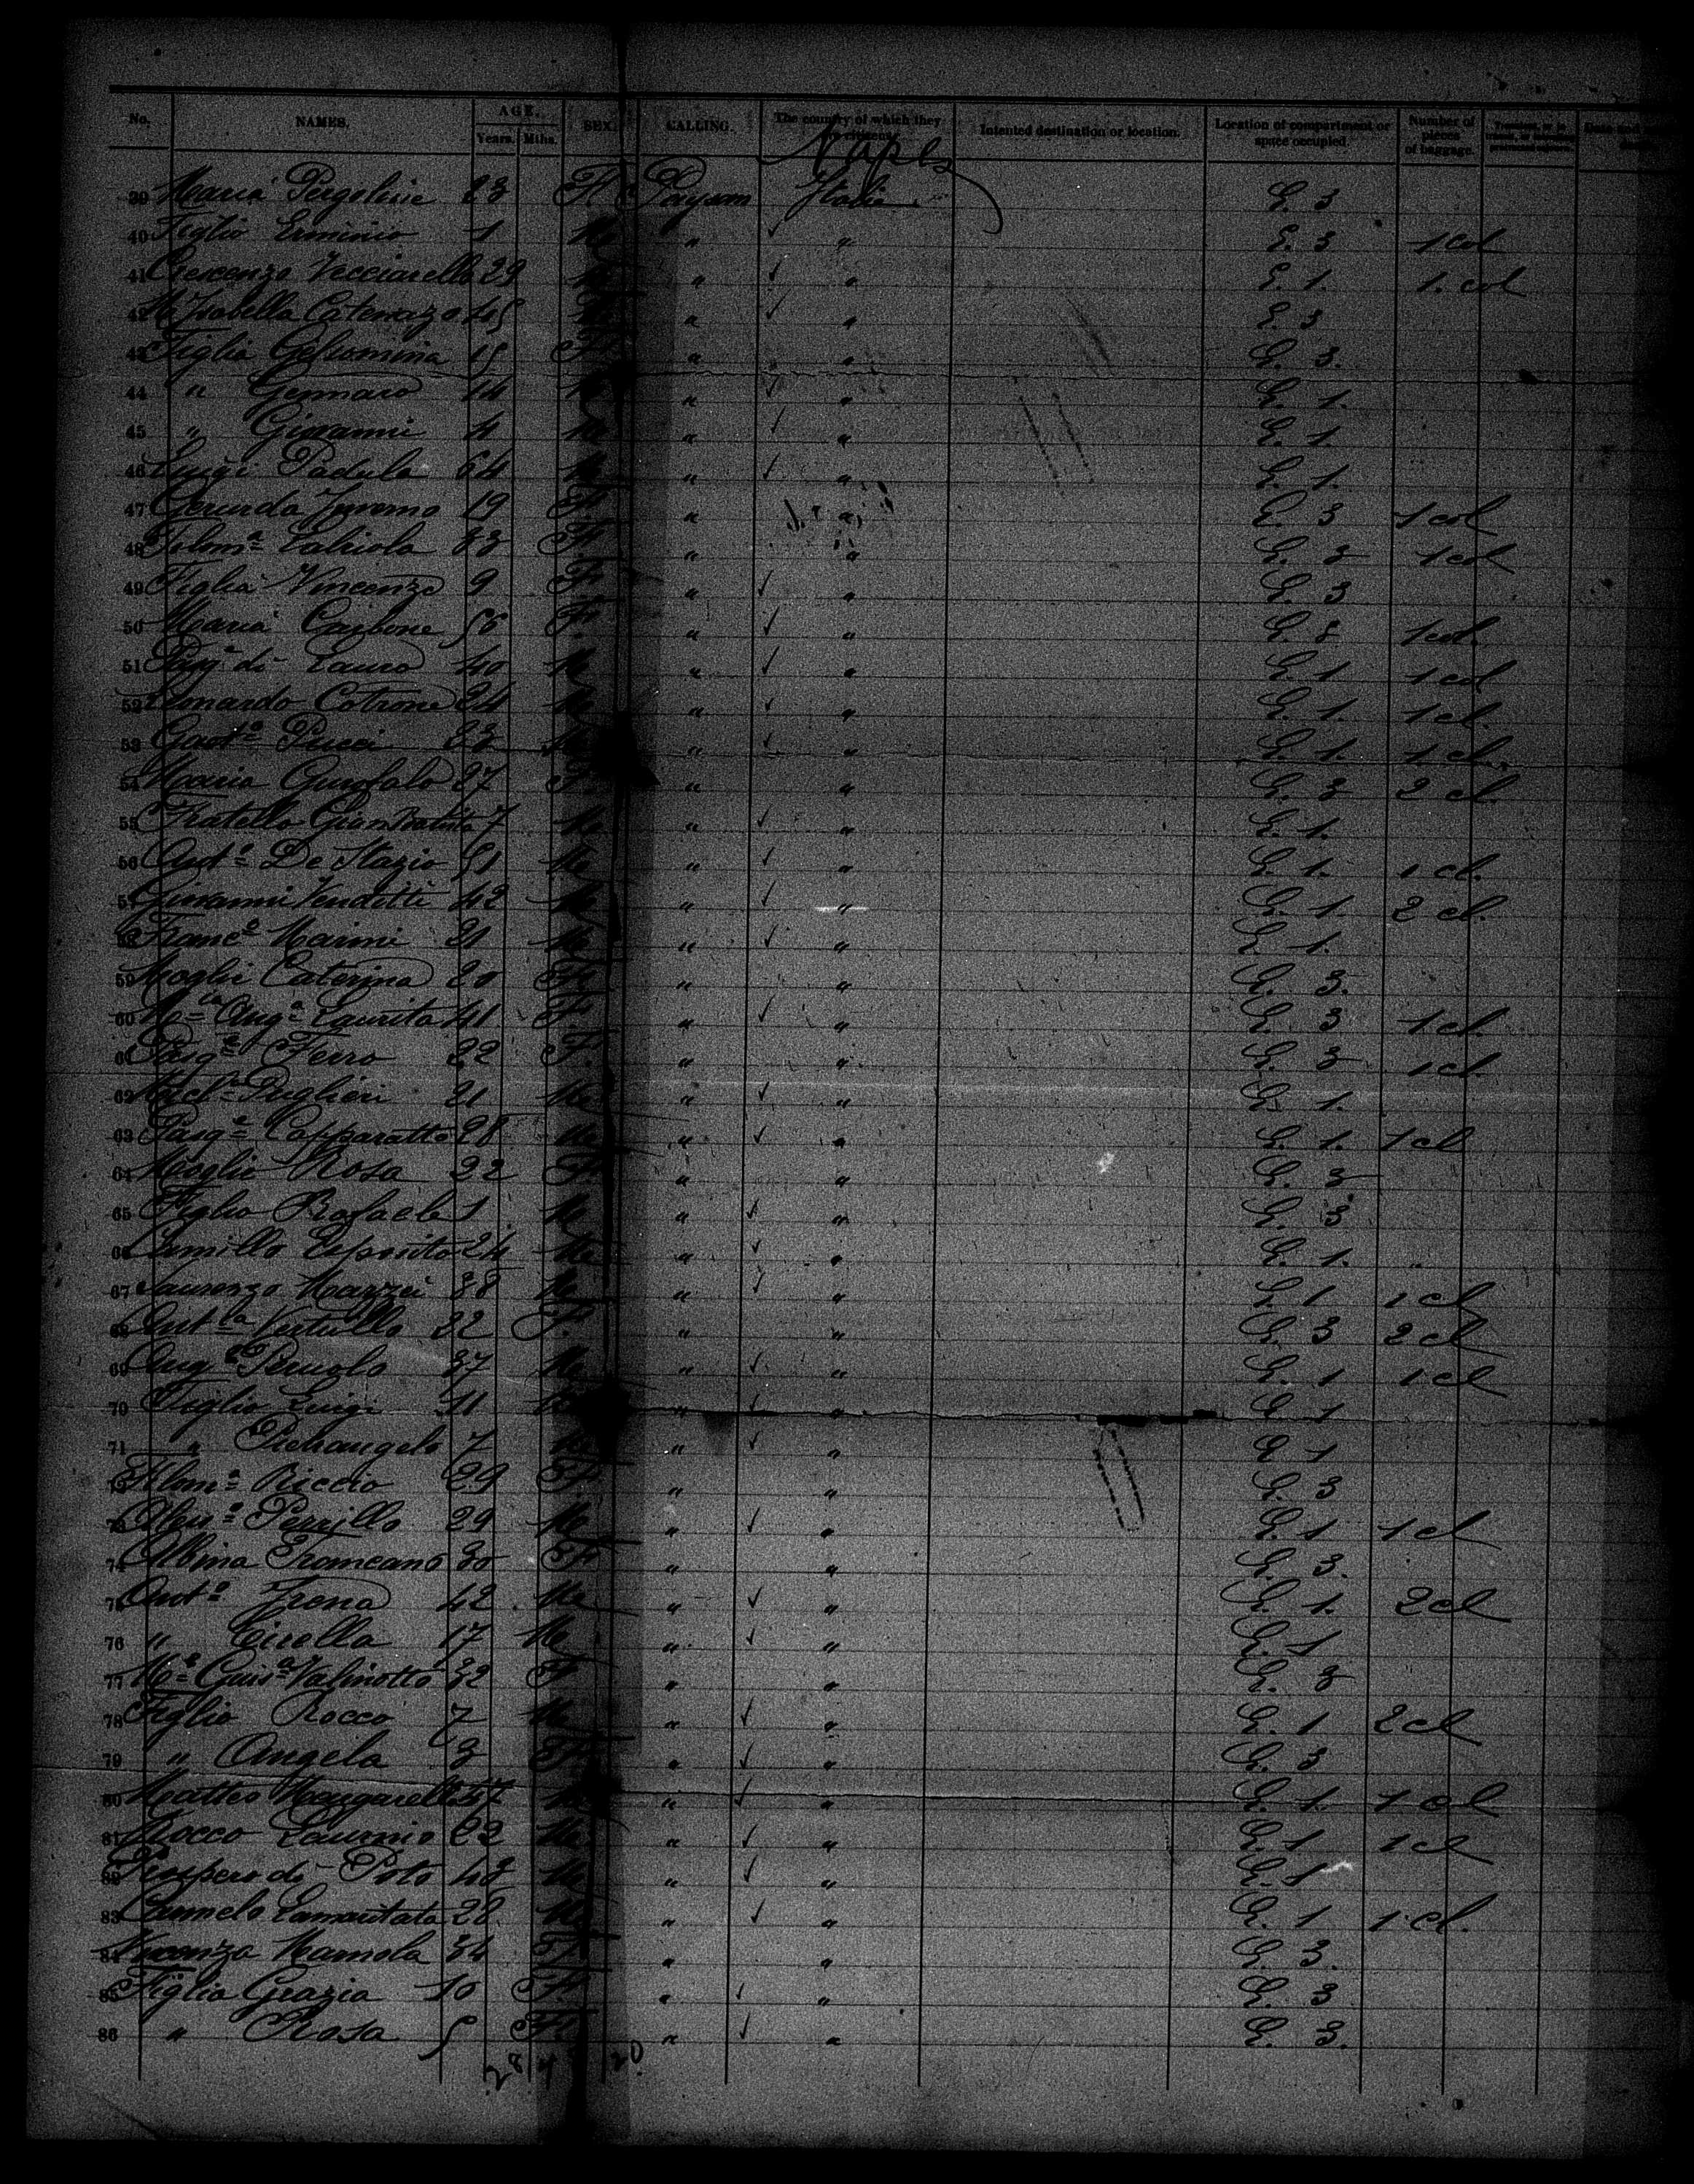 No. NAMES. AGE. Years. Mths. SEX. CALLING. The country of which they are citizens. Intented destination or location. Location of compartment or space occupied. Number of pieces of baggage.
Naples
39 Maria Pergoline 23 F. Paysan Italie E. 3
40 Figlio Erminio 1 M. " " E. 3 1 col
41 Crescenzo Vecciarello 29 M. " " E. 1. 1. col
42 M. Isabella Caterrazo 45 " " E. 3
43 Figlia Gelsomina 15 F. " " E. 3.
44 " Gennaro 14 M. " " E. 1.
45 " Giovanni 4 M. " " E. 1
46 Luigi Padula 64 M. " " E. 1.
47 Gerarda 19 F. " " E. 3 1 col
48 Filomª Calriola 33 F. " " E. 3 1 col
49 Figlia Vincenza 9 F. " " E. 3
50 Maria Carbone 56 F. " " E. 1 col.
51 Pasqe di Lauro 40 M " " E. 1 1 col
52 Leonardo Cotrone 24 M. " " E. 1. 1 cl.
53 Gaetº Pucci 33 M. " " E. 1. 1 cl.
54 Maria Garofalo 27 F. " " E. 3 2 cl.
55 Fratello Giambatista 7 M. " " E. 1.
56 Antº De Stazio 51 M. " " E. 1. 1 cl.
57 Giovanni Venditti 42 M. " " E. 1. 2 cl.
58 Francº Marini 21 M. " " E. 1.
59 Moglie Caterina 20 F. " " E. 3.
60 Mª Angª Laurita 41 F. " " E. 3 1 cl.
61 Pasqª Ferro 22 F. " " E. 3 1 cl.
62 Puglieri 21 M. " " E. 1.
63 Pasqe Capparatto 28 M. " " E. 1. 1 cl
64 Moglie Rosa 22 F. " " E. 3
65 Figlio Rafaele 1 M. " " E. 3
66 Camillo Esposito 24 M. " " E. 1.
67 Laurenzo Marzei 38 M. " " E. 1 1 cl
68 32 F. " " E. 3 2 cl
69 Angº 37 M. " " E. 1 1 cl
70 Figlio Luigi 11 M. " " E. 1
71 " Pietrangelo 7 M. " " E. 1
72 Filomª Riccio 29 F. " " E. 3
73 Perrillo 29 M. " " E. 1 1 cl
74 Albina Troncano 30 F. " " E. 3.
75 Antº Frena 42 M. " " E. 1. 2 cl
76 " Cirella 17 M. " " E. 1
77 Mª Guisª Valinotto 32 F. " " E. 3
78 Figlio Rocco 7 M. " " E. 1 2 cl
79 " Angela 3 F. " " E. 3
80 Matteo Mangarelli 47 M. " " E. 1. 1 cl
81 Rocco 22 M. " " E. 1 1 cl
82 Prospero di Poto M. " " E. 1
83 Carmelo Lamantata 28. M. " " E. 1 1 cl.
84 Vincenza Mamola 34 F. " " E. 3.
85 Figlia Grazia 10 F. " " E. 3
86 " Rosa 5 F. " " E. 3.
28 20